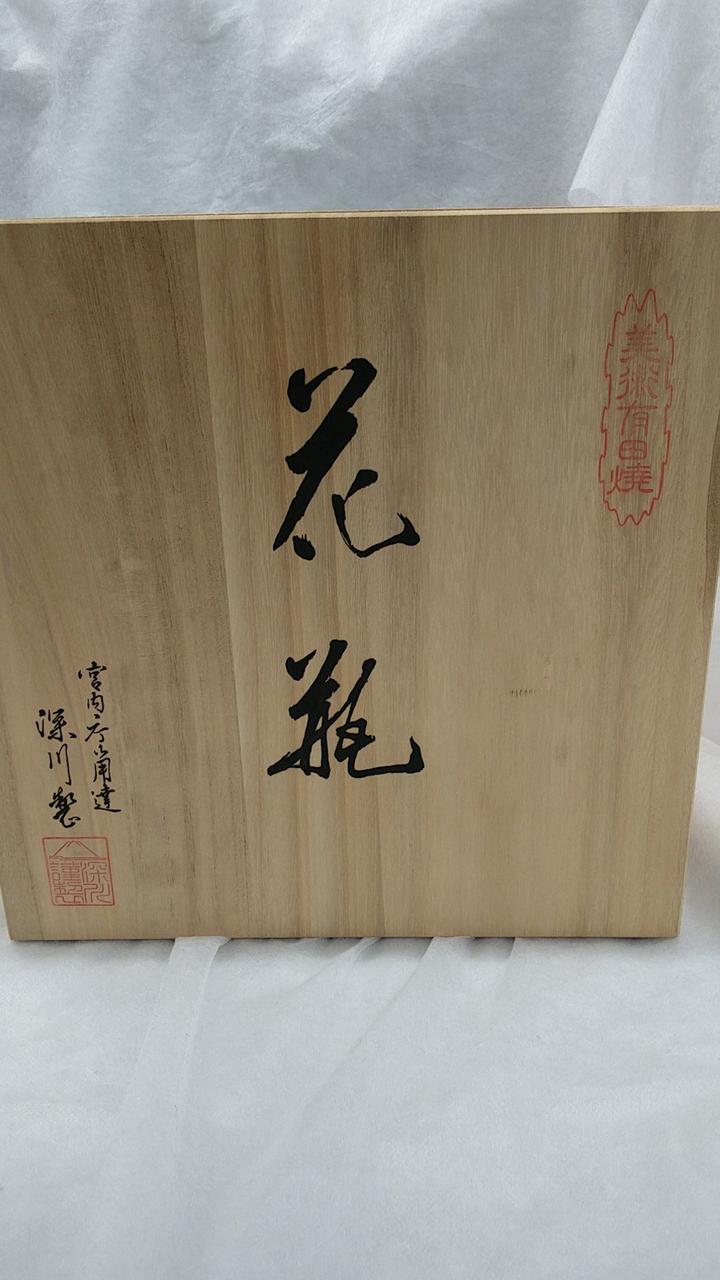 美術有田燒
花瓶
宮内庁御用達
深川製
深川
謹製